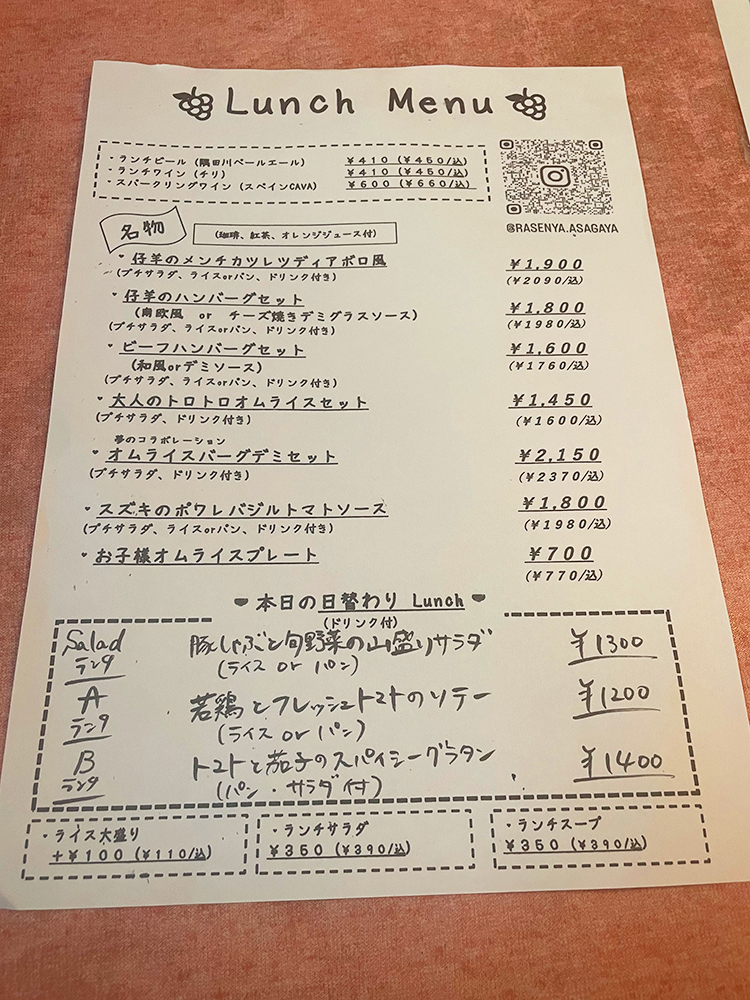 Lunch Menu
・ランチビール (隅田川ペールエール) ¥410 (¥450/込)
・ランチワイン (チリ) ¥410 (¥450/込)
・スパークリングワイン (スペインCAVA) ¥600 (¥660/込)
@RASENYA.ASAGAYA
名物
(珈琲、紅茶、オレンジジュース付)
仔羊のメンチカツレツディアボロ風 ¥1,900
(プチサラダ、ライスorパン、ドリンク付き) (¥2090/込)
仔羊のハンバーグセット ¥1,800
(南欧風 or チーズ焼きデミグラスソース) (¥1980/込)
(プチサラダ、ライスorパン、ドリンク付き)
ビーフハンバーグセット ¥1,600
(和風orデミソース) (¥1760/込)
(プチサラダ、ライスorパン、ドリンク付き)
大人のトロトロオムライスセット ¥1,450
(プチサラダ、ドリンク付き) (¥1600/込)
夢のコラボレーション
オムライスバーグデミセット ¥2,150
(プチサラダ、ドリンク付き) (¥2370/込)
スズキのポワレバジルトマトソース ¥1,800
(プチサラダ、ライスorパン、ドリンク付き) (¥1980/込)
お子様オムライスプレート ¥700
(¥770/込)
本日の日替わり Lunch
(ドリンク付)
Salad 豚しゃぶと旬野菜の山盛りサラダ ¥1300
ランチ (ライス or パン)
A 若鶏とフレッシュトマトのソテー ¥1200
ランチ (ライス or パン)
B トマトと茄子のスパイシーグラタン ¥1400
ランチ (パン・サラダ付)
・ライス大盛り
+¥100 (¥110/込)
・ランチサラダ
¥350 (¥390/込)
・ランチスープ
¥350 (¥390/込)